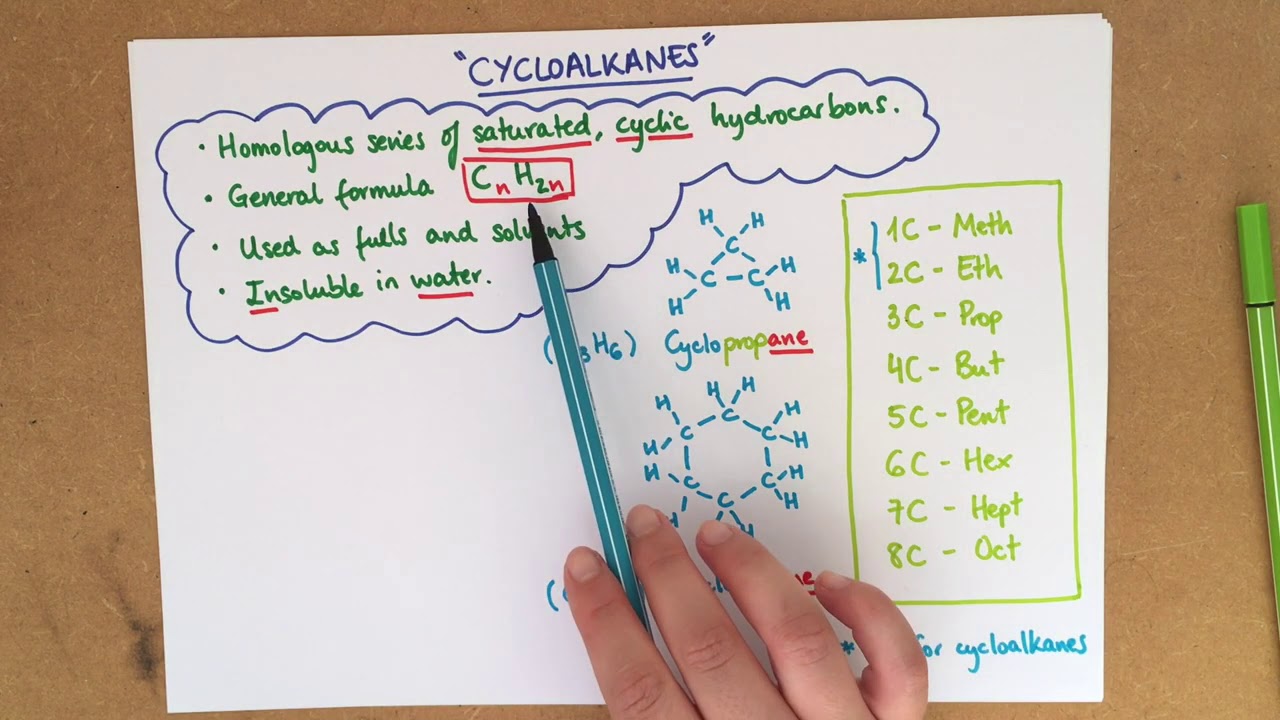 "CYCLOALKANES"
• Homologous series of saturated, cyclic hydrocarbons.
• General formula CnH2n
• Used as fulls and solvents
• Insoluble in water.
H H
C
H H
C – C
H H
3H6) Cyclopropane
H H
H H
C
C C
H H
H H
C C
H C H
H
* 1C - Meth
2C - Eth
3C - Prop
4C - But
5C - Pent
6C - Hex
7C - Hept
8C - Oct
* for cycloalkanes